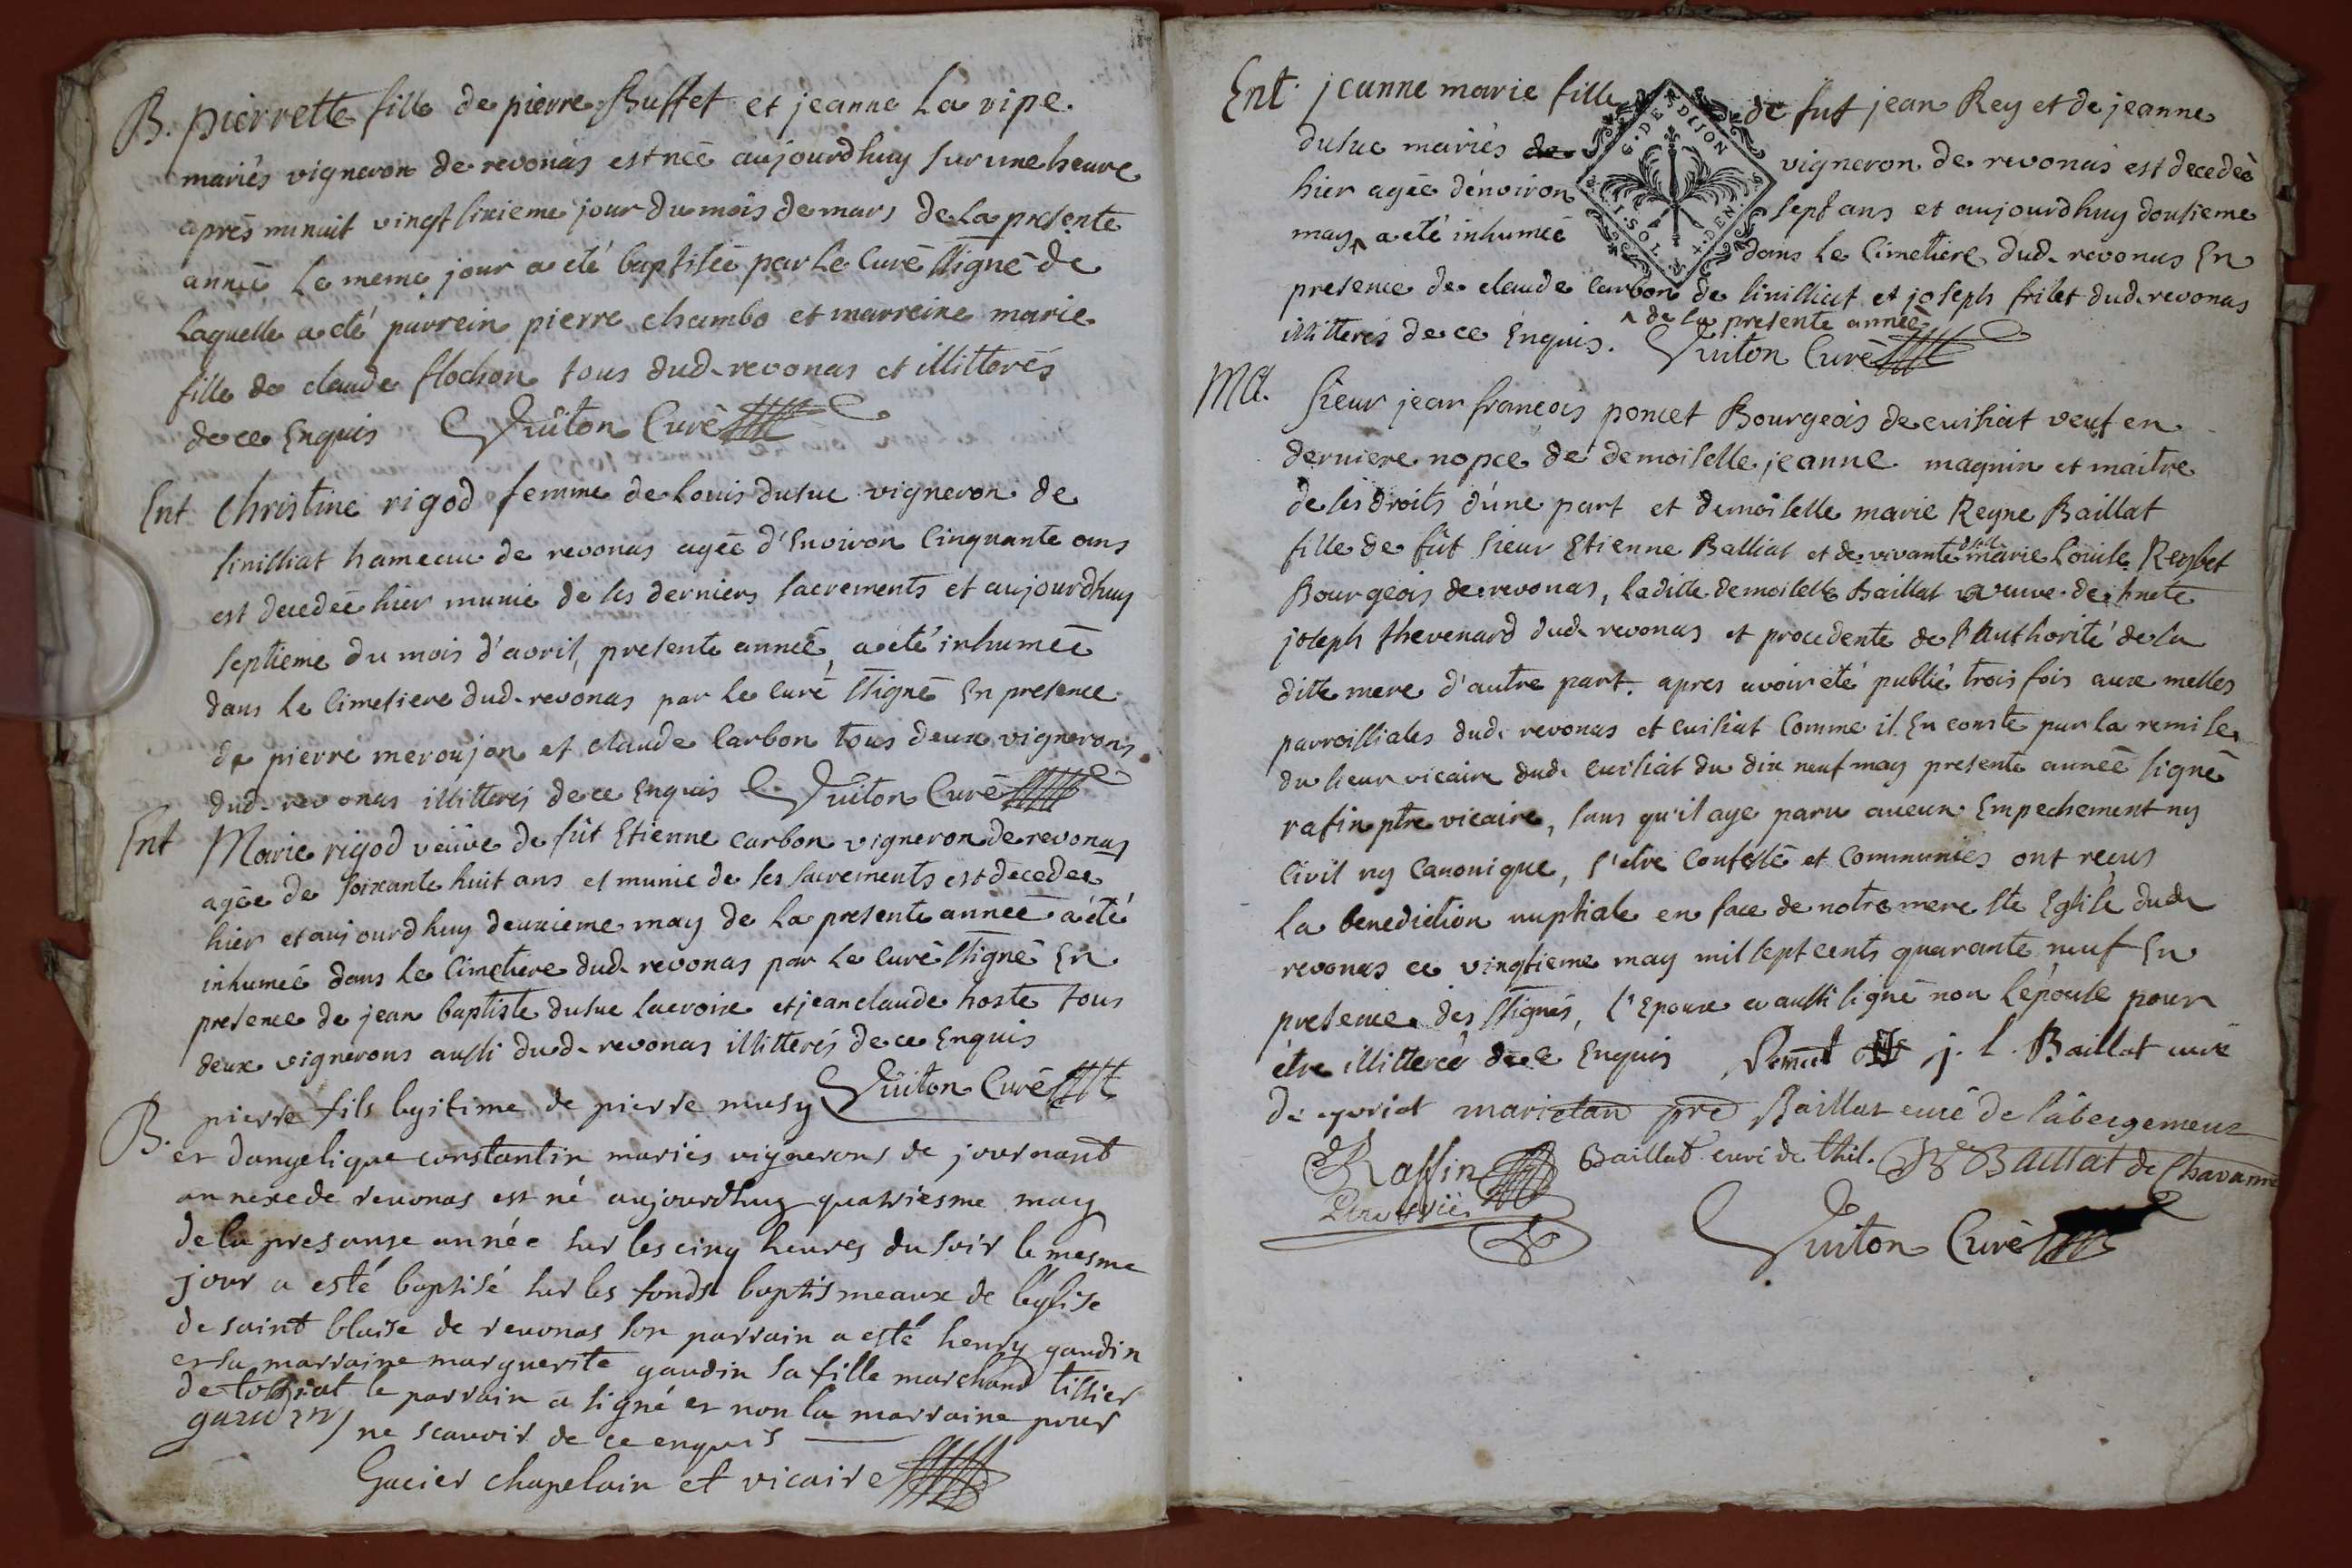 B. pierrette fille de pierre Buffet et jeanne La vipe
mariés vigneron de revonas est née aujourdhuy sur une heure
après minuit vingt sixieme jour du mois de mars de La presente
année Le meme jour a eté baptisée par Le Curé ssigné de
Laquelle a eté parrein pierre chambo et marreine marie
fille de claude flochon tous dud. revonas et illitterés
de ce Enquis Vuiton Curé
Ent Christine rigod femme de Louis dusuc vigneron de
sinissiat hameau de revonas agée d'Environ Cinquante ans
est decedée hier munie de ses derniers sacrements et aujourdhuy
septieme du mois d'avril, presente année, a eté inhumée
dans Le Cimetiere dud. revonas par Le Curé ssigné En presence
de pierre meroujon et claude Carbon tous deux vignerons
dud. revonas illitterés de ce Enquis Vuiton Curé
Ent Marie rigod veuve de fût Etienne Carbon vigneron de revonas
agée de soixante huit ans et munie de ses sacrements est decedée
hier et aujourdhuy deuxieme may de La presente année a eté
inhumée dans Le Cimetiere dud. revonas par Le Curé ssigné En
presence de jean baptiste dusuc lacroix et jean claude hoste tous
deux vignerons aussi dud. revonas illitterés de ce Enquis
Vuiton Curé
B. pierre fils legitime de pierre musy
et dangelique constantin mariés vignerons de journant
annexe de revonas est né aujourdhuy quatriesme may
de la presanse année sur les cinq heures du soir le mesme
jour a esté baptisé sur les fonds baptismeaux de l'eglise
de saint blaise de revonas son parrain a esté henry gaudin
et sa marraine marguerite gaudin sa fille marchand tissier
de tossiat le parrain a signé et non la marraine pour
ne scavoir de ce enquis
Gacier chapelain et vicaire
Ent. jeanne marie fille de fut jean Rey et de jeanne
dusuc mariés de vigneron de revonas est decedée
G. DE DIJON
I. SOL
DEN.
hier agée d'environ sept ans et aujourdhuy dousieme
may ^ a eté inhumée dans Le Cimetiere dud. revonas En
presence de claude Carbon de sinissiat et joseph frilet dud. revonas
^ de La presente année
illitterés de ce Enquis. Vuiton Curé
Ma. sieur jean françois poncet Bourgeois de cuisiat veuf en
derniere nopce de demoiselle jeanne magnin et maitre
de ses droits d'une part et demoiselle marie Reyne Baillat
fille de fût sieur Etienne Balliat et de vivante marie Louise
Bourgeois de revonas, Laditte demoiselle Baillat veuve de hnete
joseph thevenard dud. revonas et procedente de l'Authorité de La
ditte mere d'autre part. apres avoir été publié trois fois aux messes
parroissiales dud. revonas et cuisiat Comme il En conste par la remise
du sieur vicaire dud. cuisiat du dix neuf may presente année signé
rafin ptre vicaire, sans qu'il aye paru aucun Empechement ny
Civil ny Canonique, s'etre Confessé et Communiés ont recus
La benediction nuptiale en face de notre mere Ste Eglise dud.
revonas ce vingtieme may mil sept cents quarante neuf En
presence des ssignés, l'Epoux a aussi signé non L'épouse pour
être illitterée de ce Enquis j. l. Baillat curé
de mariclan pre Baillat curé de labergement
Raffin Baillat curé de thil. Baillat de Chavanne
Vuiton Curé